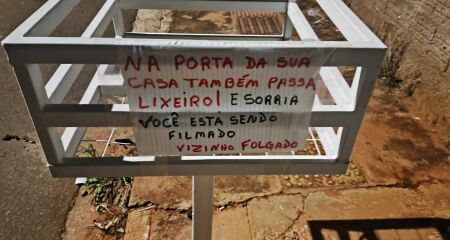 NA PORTA DA SUA
CASA TAMBÉM PASSA
LIXEIRO! E SORRIA
VOCÊ ESTA SENDO
FILMADO
VIZINHO FOLGADO